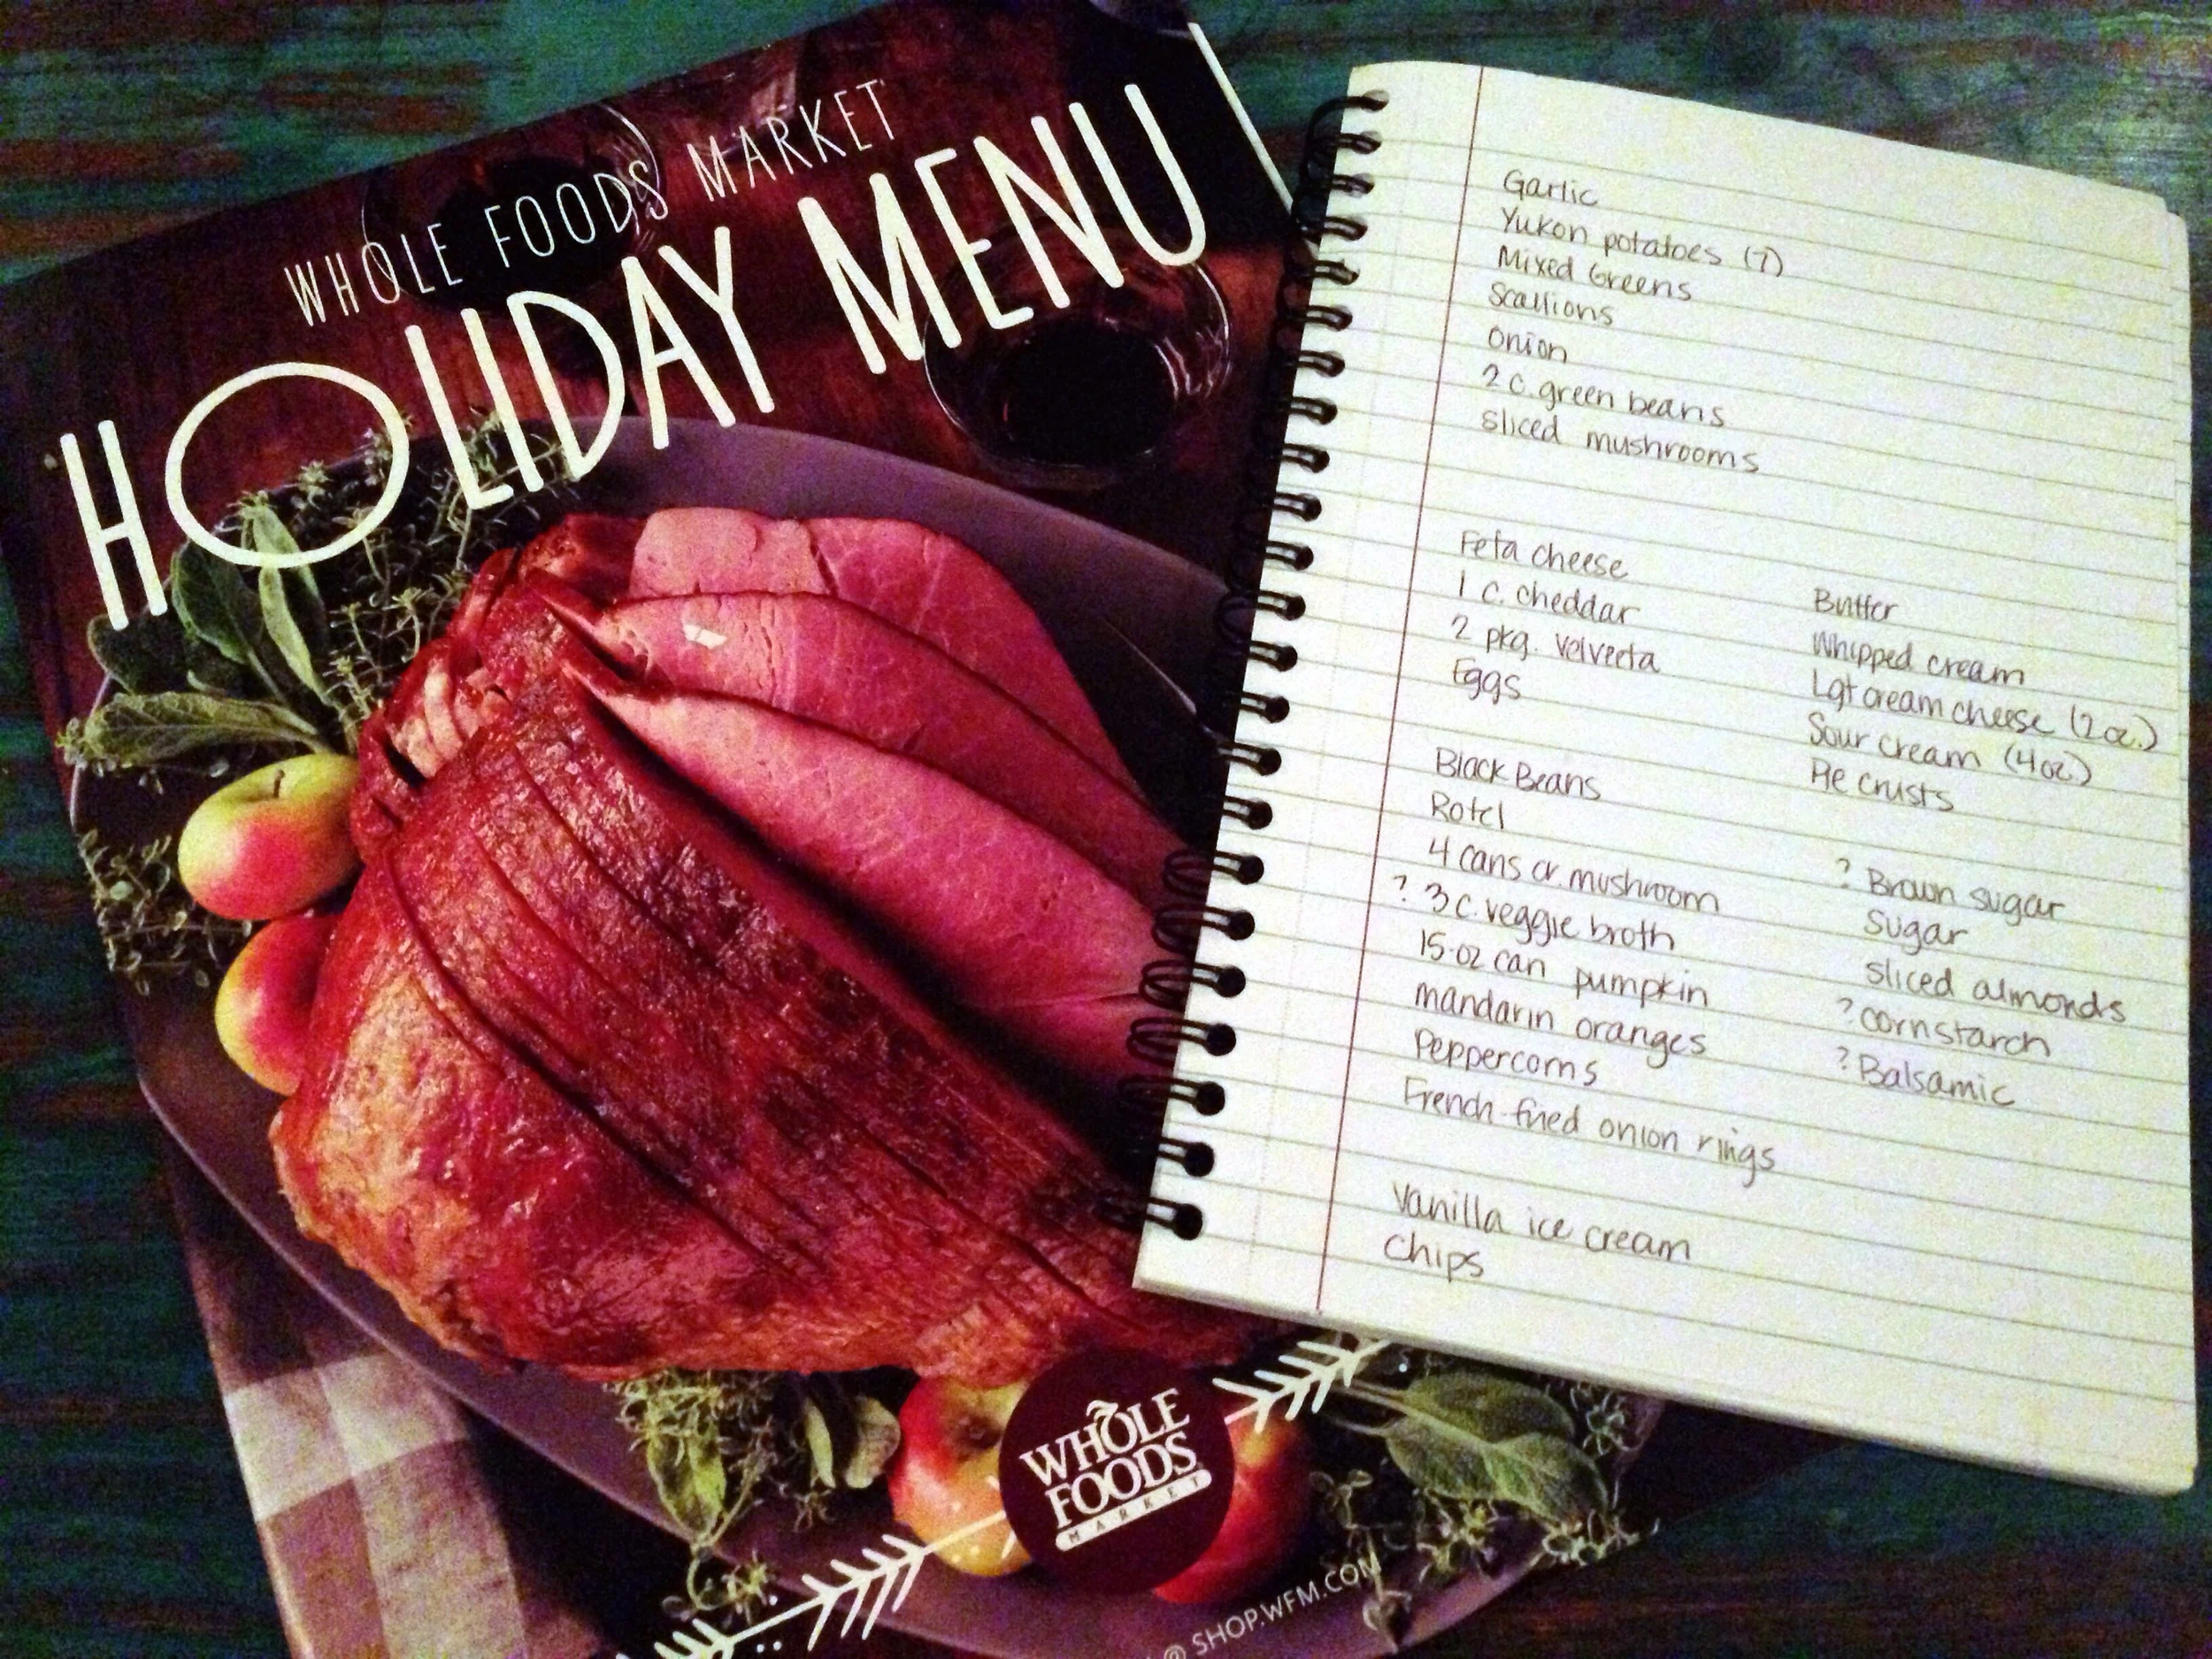 WHOLE FOODS MARKET
HOLIDAY MENU
WHOLE
FOODS
MARKET
@ SHOP.WFM.COM
Garlic
Yukon potatoes (7)
Mixed Greens
Scallions
Onion
2 c. green beans
sliced mushrooms
Feta cheese
1 c. cheddar
2 pkg. Velveeta
Eggs
Butter
Whipped cream
Lgt cream cheese (2 oz.)
Sour cream (4 oz.)
Pie crusts
Black Beans
Rotel
4 cans cr. mushroom
? 3 c. veggie broth
15-oz can pumpkin
mandarin oranges
Peppercorns
French-fried onion rings
? Brown sugar
Sugar
sliced almonds
? cornstarch
? Balsamic
Vanilla ice cream
Chips